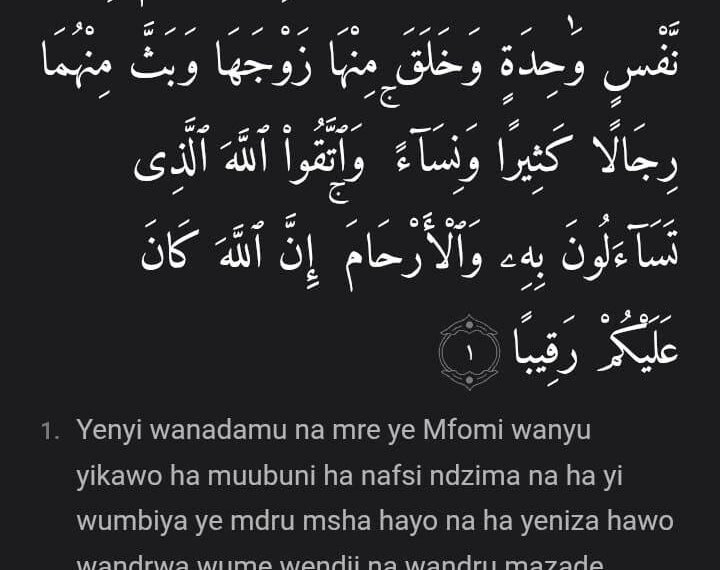 نَّفْسٍ وَٰحِدَةٍ وَخَلَقَ مِنْهَا زَوْجَهَا وَبَثَّ مِنْهُمَا
رِجَالًا كَثِيرًا وَنِسَآءً ۚ وَٱتَّقُوا۟ ٱللَّهَ ٱلَّذِى
تَسَآءَلُونَ بِهِۦ وَٱلْأَرْحَامَ ۚ إِنَّ ٱللَّهَ كَانَ
عَلَيْكُمْ رَقِيبًا ١
1. Yenyi wanadamu na mre ye Mfomi wanyu
yikawo ha muubuni ha nafsi ndzima na ha yi
wumbiya ye mdru msha hayo na ha yeniza hawo
wandrwa wume wendji na wandru mazade